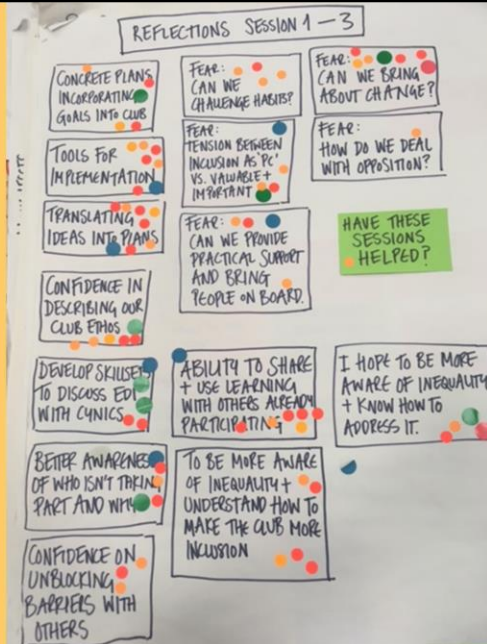 REFLECTIONS SESSION 1-3
CONCRETE PLANS
INCORPORATING
GOALS INTO CLUB
TOOLS FOR
IMPLEMENTATION
TRANSLATING
IDEAS INTO PLANS
CONFIDENCE IN
DESCRIBING OUR
CLUB ETHOS
DEVELOP SKILLSET
TO DISCUSS EDI
WITH CYNICS
BETTER AWARENESS
OF WHO ISN'T TAKING
PART AND WHY
CONFIDENCE ON
UNBLOCKING
BARRIERS WITH
OTHERS
FEAR:
CAN WE
CHALLENGE HABITS?
FEAR:
TENSION BETWEEN
INCLUSION AS 'PC'
VS. VALUABLE +
IMPORTANT
FEAR:
CAN WE PROVIDE
PRACTICAL SUPPORT
AND BRING
PEOPLE ON BOARD.
ABILITY TO SHARE
+ USE LEARNING
WITH OTHERS ALREADY
PARTICIPATING
TO BE MORE AWARE
OF INEQUALITY +
UNDERSTAND HOW TO
MAKE THE CLUB MORE
INCLUSION
FEAR:
CAN WE BRING
ABOUT CHANGE?
FEAR:
HOW DO WE DEAL
WITH OPPOSITION?
HAVE THESE
SESSIONS
HELPED?
I HOPE TO BE MORE
AWARE OF INEQUALITY
+ KNOW HOW TO
ADDRESS IT.